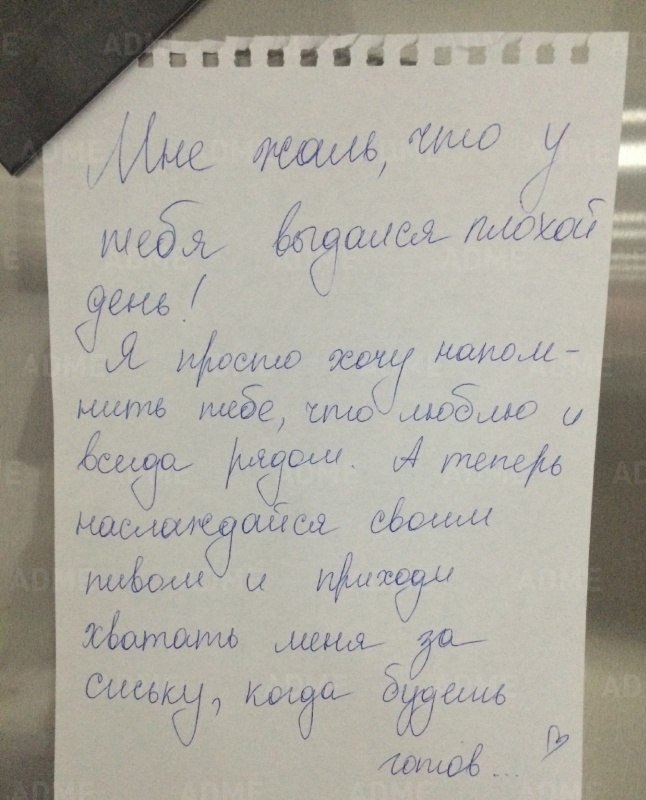 Мне жаль, что у
тебя выдался плохой
день!
Я просто хочу напом-
нить тебе, что люблю и
всегда рядом. А теперь
наслаждайся своим
пивом и приходи
хватать меня за
сиську, когда будешь
готов...
ADME